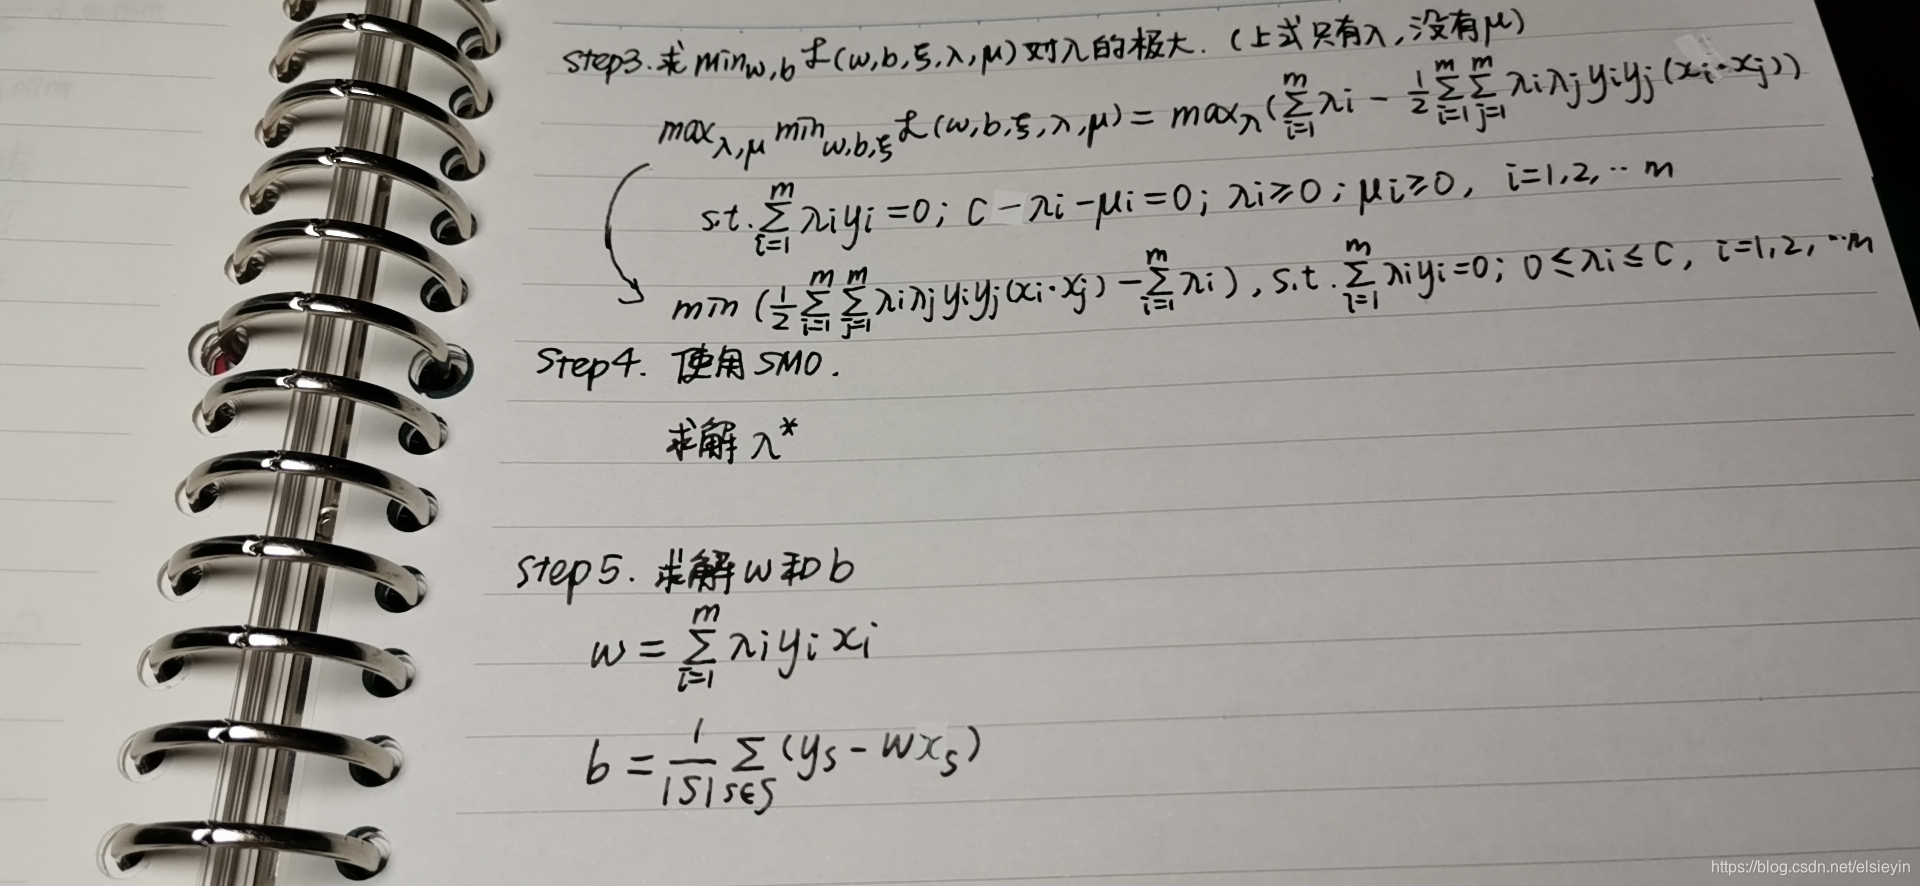 Step3. 求 min_{w,b} ℒ(w,b,ξ,λ,μ) 对λ的极大. (上式只有λ,没有μ)
max_{λ,μ} min_{w,b,ξ} ℒ(w,b,ξ,λ,μ) = max_λ (∑_{i=1}^{m} λi - 1/2 ∑_{i=1}^{m} ∑_{j=1}^{m} λiλj yiyj (xi·xj))
s.t. ∑_{i=1}^{m} λiyi = 0; C - λi - μi = 0; λi ≥ 0; μi ≥ 0, i=1,2,·· m
min (1/2 ∑_{i=1}^{m} ∑_{j=1}^{m} λiλj yiyj (xi·xj) - ∑_{i=1}^{m} λi), s.t. ∑_{i=1}^{m} λiyi = 0; 0 ≤ λi ≤ C, i=1,2,··m
Step4. 使用SMO.
求解 λ*
Step5. 求解w和b
w = ∑_{i=1}^{m} λiyixi
b = 1/|S| ∑_{s∈S} (ys - wxs)
https://blog.csdn.net/elsieyin